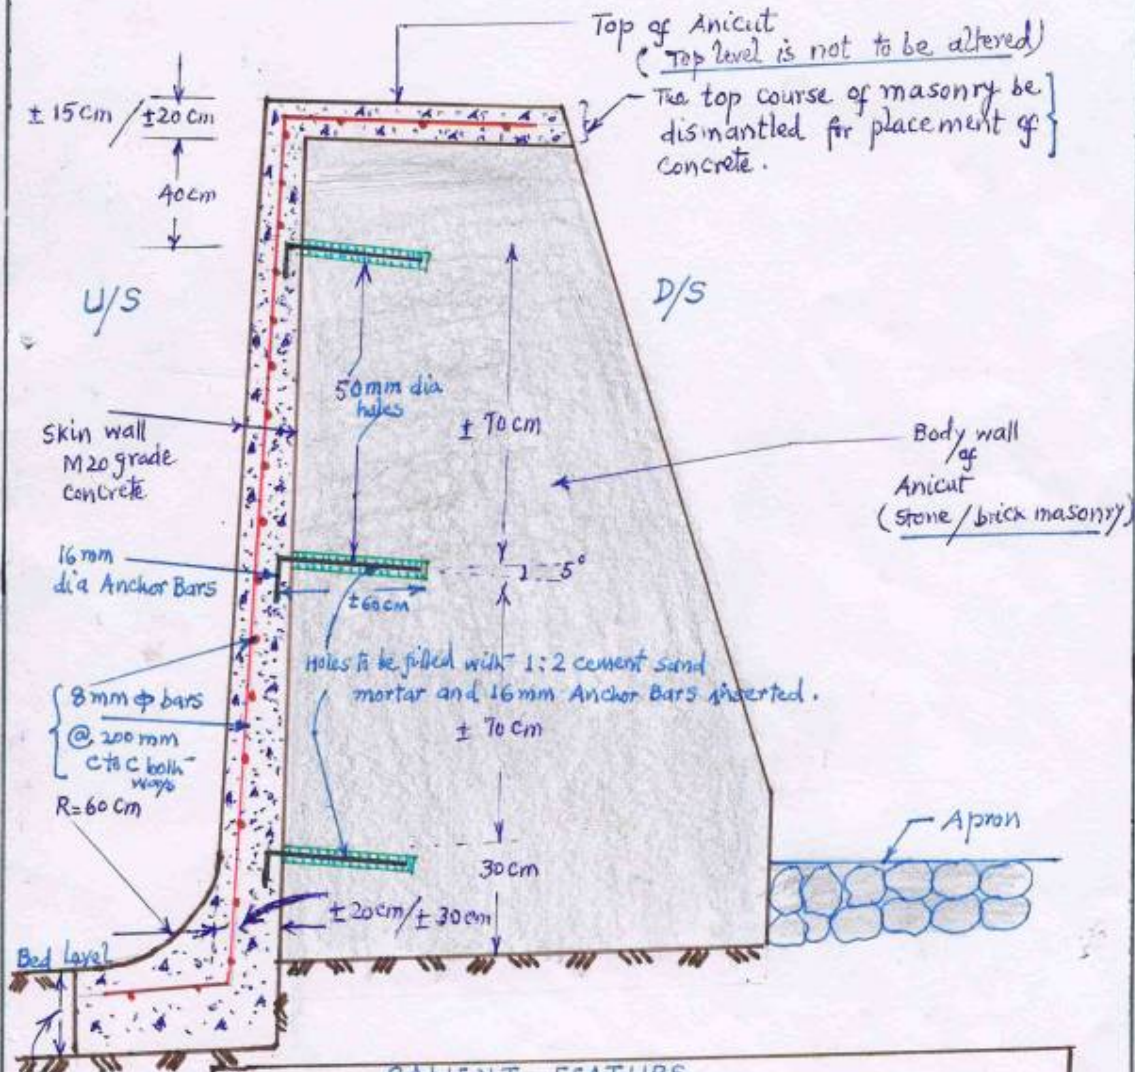 Top of Anicut
(Top level is not to be altered)
The top course of masonry be
dismantled for placement of
concrete.
± 15cm / ±20cm
40cm
U/S
D/S
50mm dia
holes
± 70cm
Skin wall
M20 grade
concrete
Body wall
of
Anicut
(Stone / brick masonry)
16mm
dia Anchor Bars
5°
±60cm
Holes to be filled with 1:2 cement sand
mortar and 16mm Anchor Bars inserted.
8mm ф bars
@ 200mm
C to C both
ways
± 70cm
R=60 Cm
Apron
30cm
±20cm/±30cm
Bed Level
SALIENT FEATURE